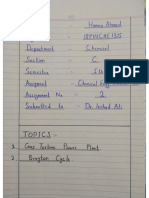 Hamza Ahmad
Department Chemical
Section C
Semester 5th
Assignment Chemical Engg
Assignment No 2
Submitted to Dr. Arshad Ali
TOPICS :-
1. Gas Turbine Power Plant
2. Brayton Cycle